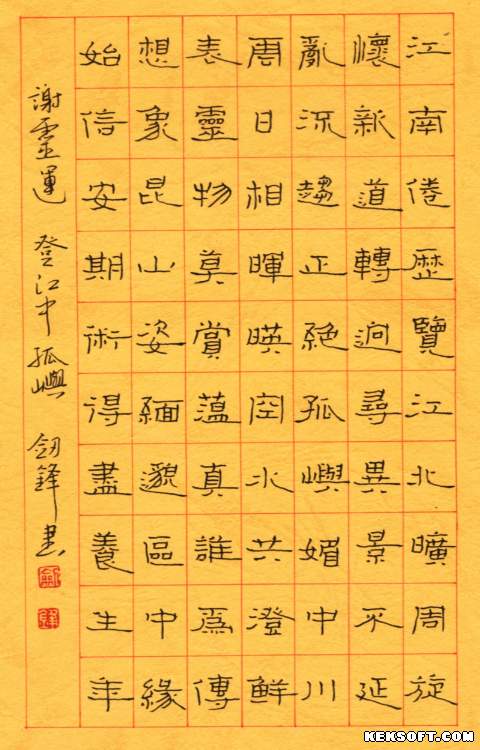 江南倦歷覽江北曠周旋
懷新道轉迥尋異景不延
亂流趨正絕孤嶼媚中川
雲日相暉暎空水共澄鮮
表靈物莫賞蕰真誰為傳
想象昆山姿緬邈區中緣
始信安期術得盡養生年
謝靈運 登江中孤嶼 劍鋒書
KEKSOFT.COM